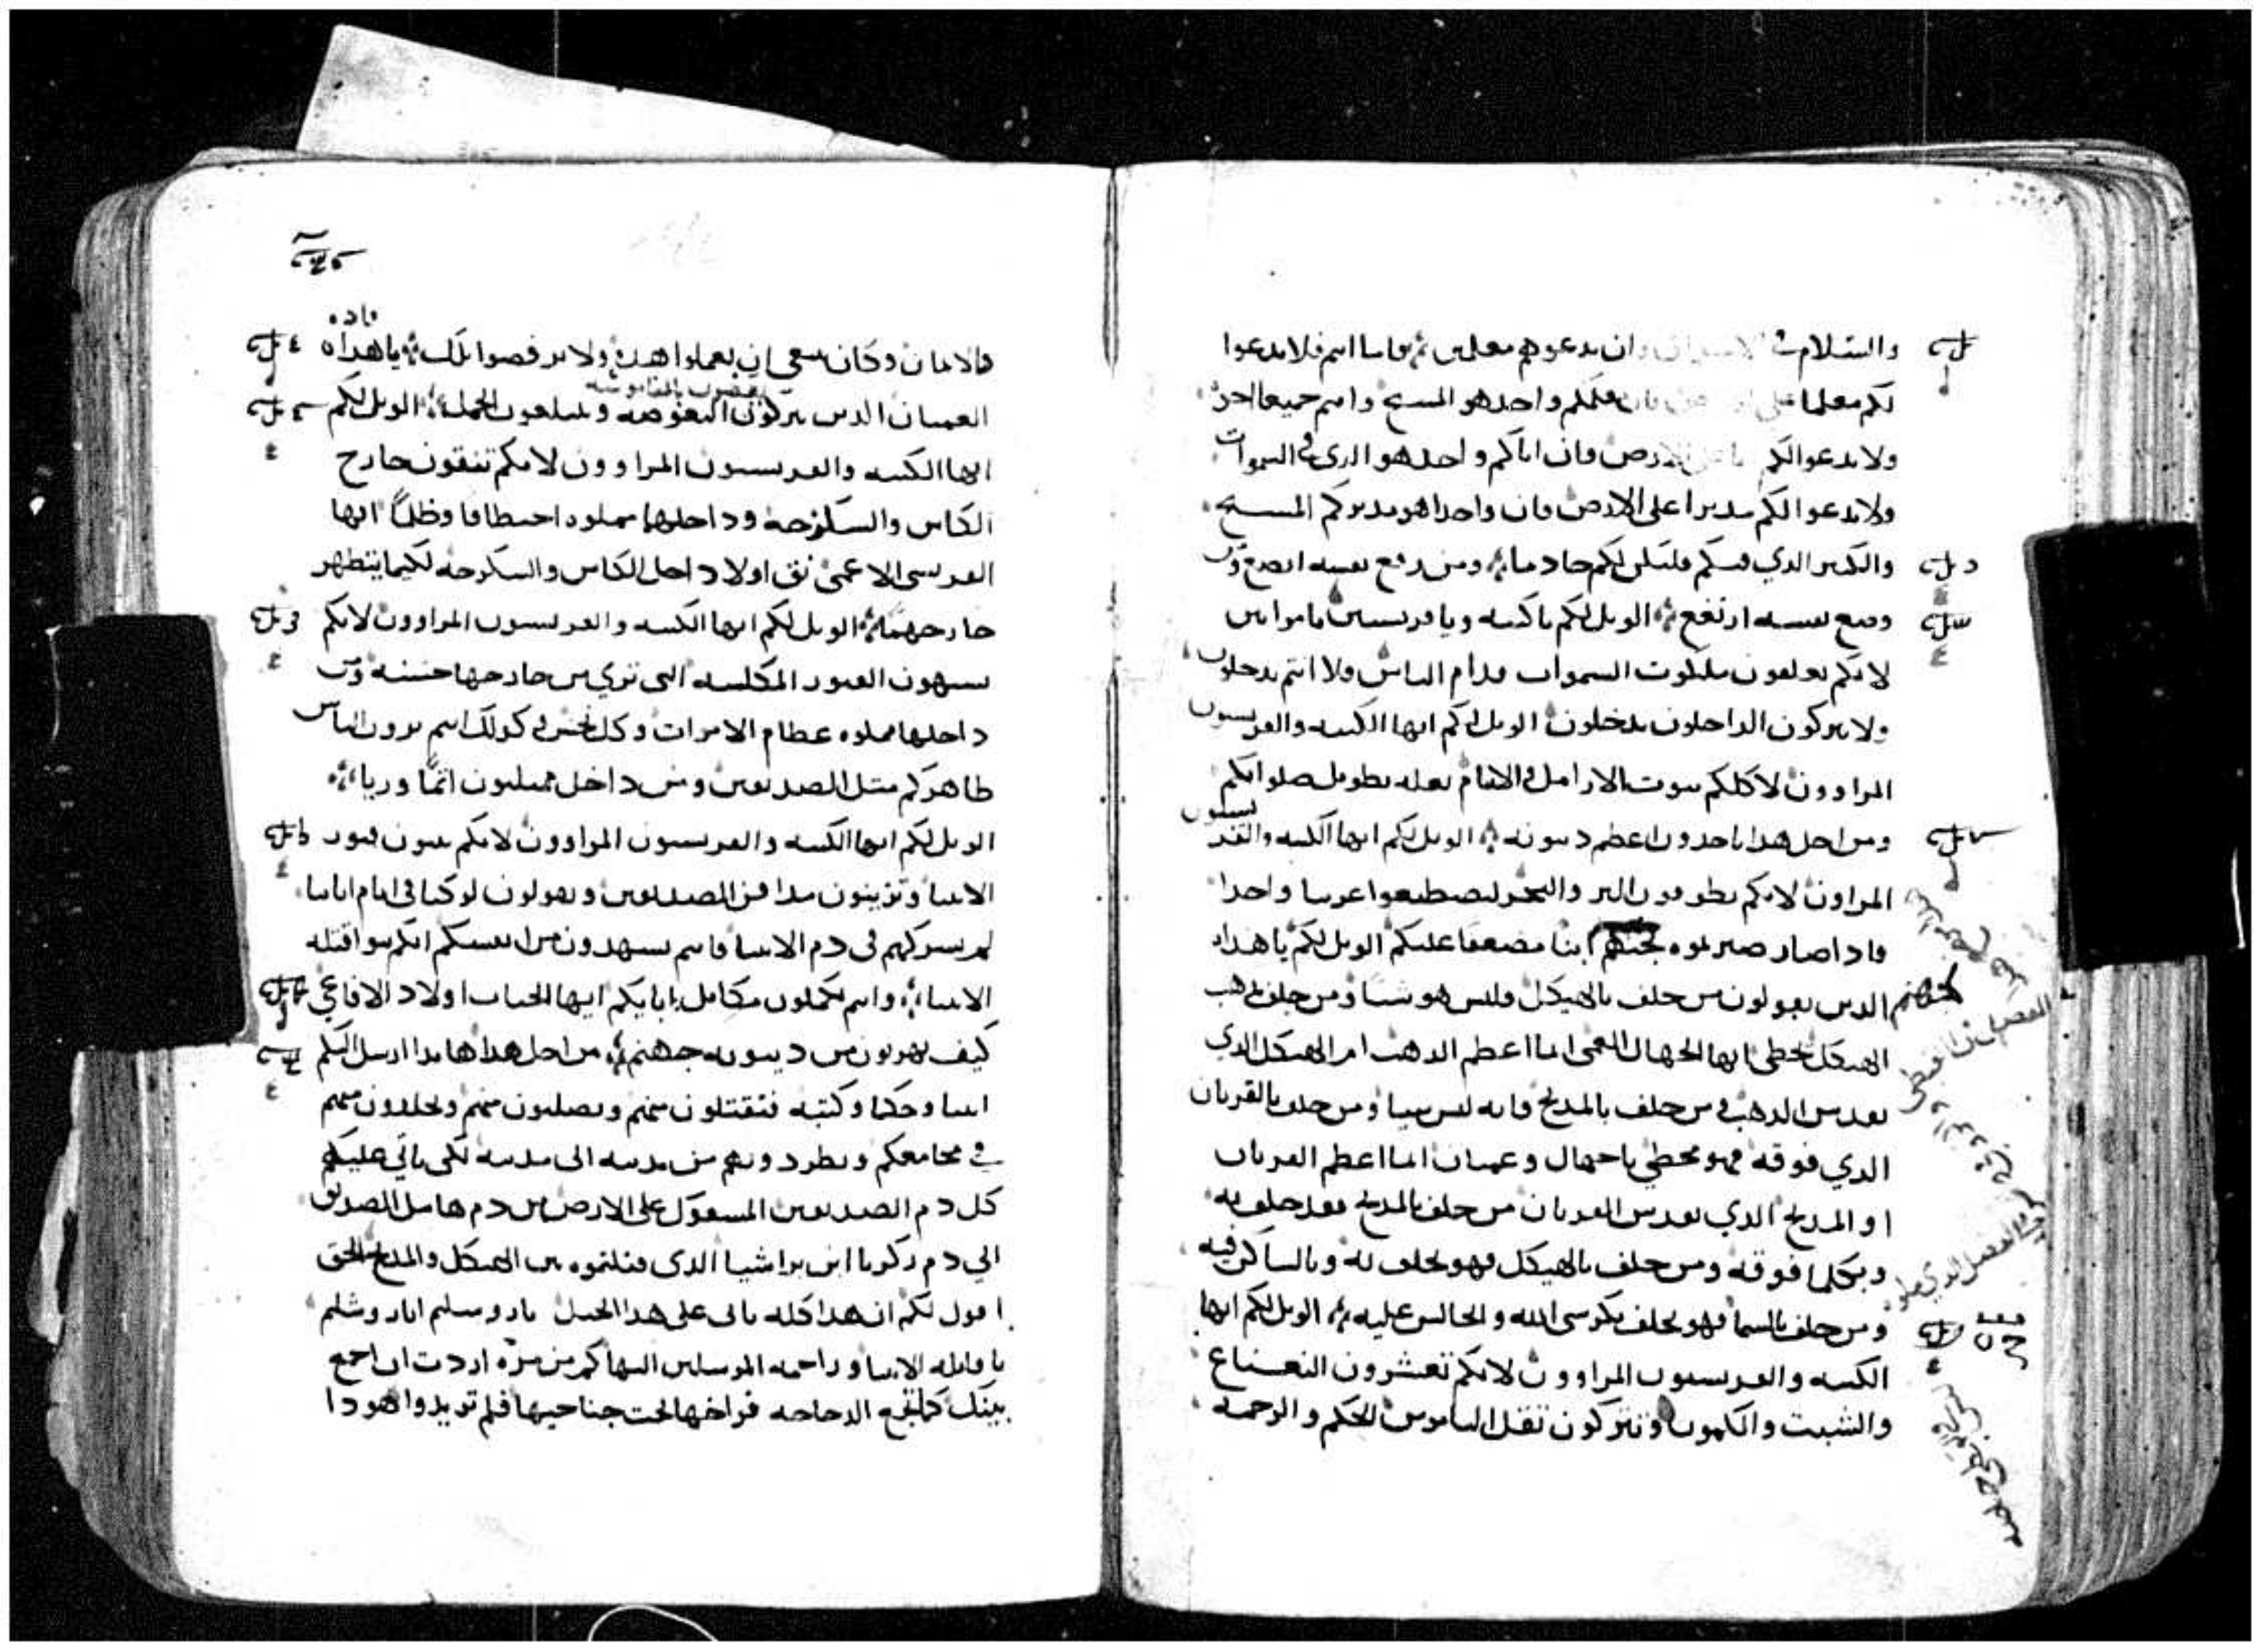 والسلام في الاسواق وان يدعوهم معلمين فاما انتم فلا تدعوا
لكم معلما على الارض فان معلمكم واحد هو المسيح وانتم جميعا اخوة
ولا تدعوا لكم ابا على الارض فان اباكم واحد هو الذي في السموات
ولا تدعوا لكم مدبرا على الارض فان واحدا هو مدبركم المسيح
والكبير الذي فيكم فليكن لكم خادما ومن رفع نفسه اتضع ومن
وضع نفسه ارتفع الويل لكم يا كتبه ويا فريسيين يا مرايين
لانكم تغلقون ملكوت السموات قدام الناس فلا انتم تدخلون
ولا تتركون الداخلون يدخلون الويل لكم ايها الكتبه والفريسيون
المراوون لاكلكم بيوت الارامل والايتام بعلة تطويل صلواتكم
ومن اجل هذا تاخذون اعظم دينونه الويل لكم ايها الكتبه والفريسيون
المراون لانكم تطوفون البر والبحر لتصطنعوا غريبا واحدا
فاذا صار صيرتموه لجهنم ابنا مضعفا عليكم الويل لكم يا هداه
الذين تقولون من حلف بالهيكل فليس هو شيا ومن حلف بذهب
الهيكل يخطي ايها الجهال العمي ايما اعظم الذهب ام الهيكل الذي
يقدس الذهب ومن حلف بالمذبح فانه ليس شيا ومن حلف بالقربان
الذي فوقه فهو مخطي يا جهال وعميان ايما اعظم القربان
او المذبح الذي يقدس القربان من حلف بالمذبح فقد حلف به
وبكلما فوقه ومن حلف بالهيكل فهو يحلف به وبالساكن فيه
ومن حلف بالسما فهو يحلف بكرسي الله والجالس عليه الويل لكم ايها
الكتبه والفريسيون المراوون لانكم تعشرون النعناع
والشبت والكمون وتتركون ثقل الناموس الحكم والرحمه
والايمان وكان ينبغي ان تعملوا هذه ولا ترفضوا تلك يا هداه
العميان الذين يتركون البعوضه ويبلعون الجمل الويل لكم
ايها الكتبه والفريسيون المراوون لانكم تنقون خارج
الكاس والسكرجه وداخلهما مملوه اختطافا وظلما ايها
الفريسي الاعمى نق اولا داخل الكاس والسكرجه لكيما يتطهر
خارجهما الويل لكم ايها الكتبه والفريسيون المراوون لانكم
تشبهون القبور المكلسه التي تري من خارجها حسنه ومن
داخلها مملوه عظام الاموات وكل نجس وكذلك انتم يرون الناس
ظاهركم مثل الصديقين ومن داخل ممتليون اثما وريا
الويل لكم ايها الكتبه والفريسيون المراوون لانكم تبنون قبور
الانبيا وتزينون مدافن الصديقين وتقولون لو كنا في ايام ابائنا
لم نشركهم في دم الانبيا فانتم تشهدون من انفسكم انكم بنو قتله
الانبياء وانتم تكملون مكاييل ابايكم ايها الحيات اولاد الافاعي
كيف تهربون من دينونه جهنم من اجل هذا هانذا ارسل اليكم
انبيا وحكما وكتبه فتقتلون منهم وتصلبون منهم وتجلدون منهم
في مجامعكم وتطردونهم من مدينه الى مدينه لكي ياتي عليكم
كل دم الصديقين المسفوك على الارض من دم هابيل الصديق
الي دم زكريا ابن براشيا الذي قتلتموه بين الهيكل والمذبح الحق
اقول لكم ان هذا كله ياتي على هذا الجيل ياروسليم ياروشليم
يا قاتله الانبيا وراجمه المرسلين اليها كم من مره اردت ان اجمع
بينك كما تجمع الدجاجه فراخها تحت جناحيها فلم تريدوا هوذا